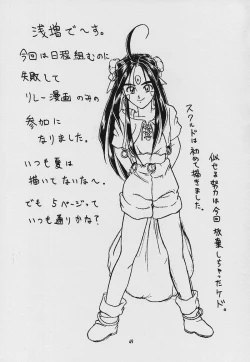 浅増で〜す。
今回は日程組むのに
失敗して
リレー漫画のみの
参加に
なりました。
いつも夏は
描いてないな〜。
でも5ページって
いつも通りかな?
スクルドは初めて描きました。
似せる努力は今回放棄し
ちゃったケド。